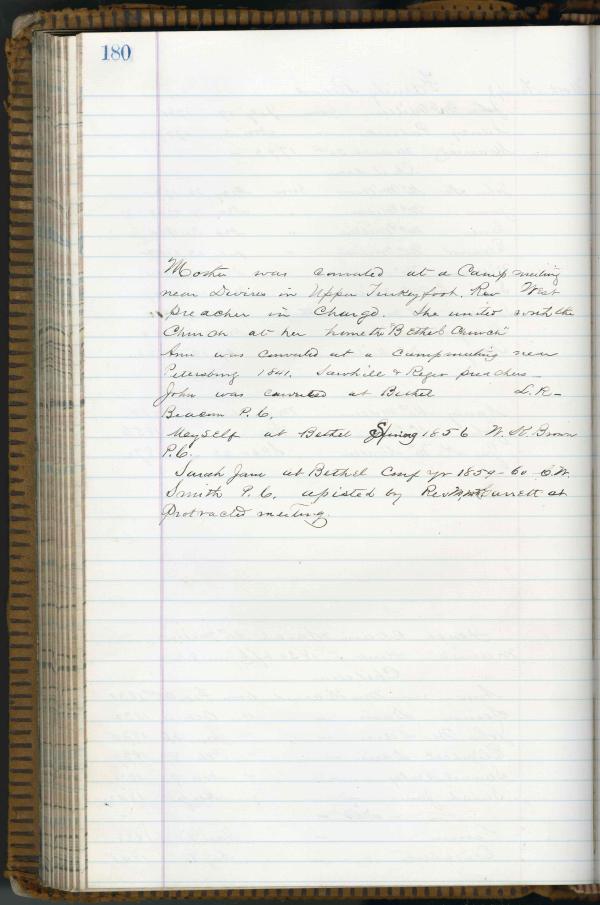 180
Mother was converted at a Camp meeting
near Divires in Upper Turkeyfoot. Rev West
preacher in Charge. She united with the
Church at her home the "Bethel Church"
Ann was converted at a camp meeting near
Petersburg 1841. Sawhill & Reger preachers
John was converted at Bethel L. R.
Beacom P. C.
Meyself at Bethel Spring 1856 W. K. Brown
P. C.
Sarah Jane at Bethel Conf yr 1859-60 C. W.
Smith P. C. apisted by Rev at
Protracted meeting.